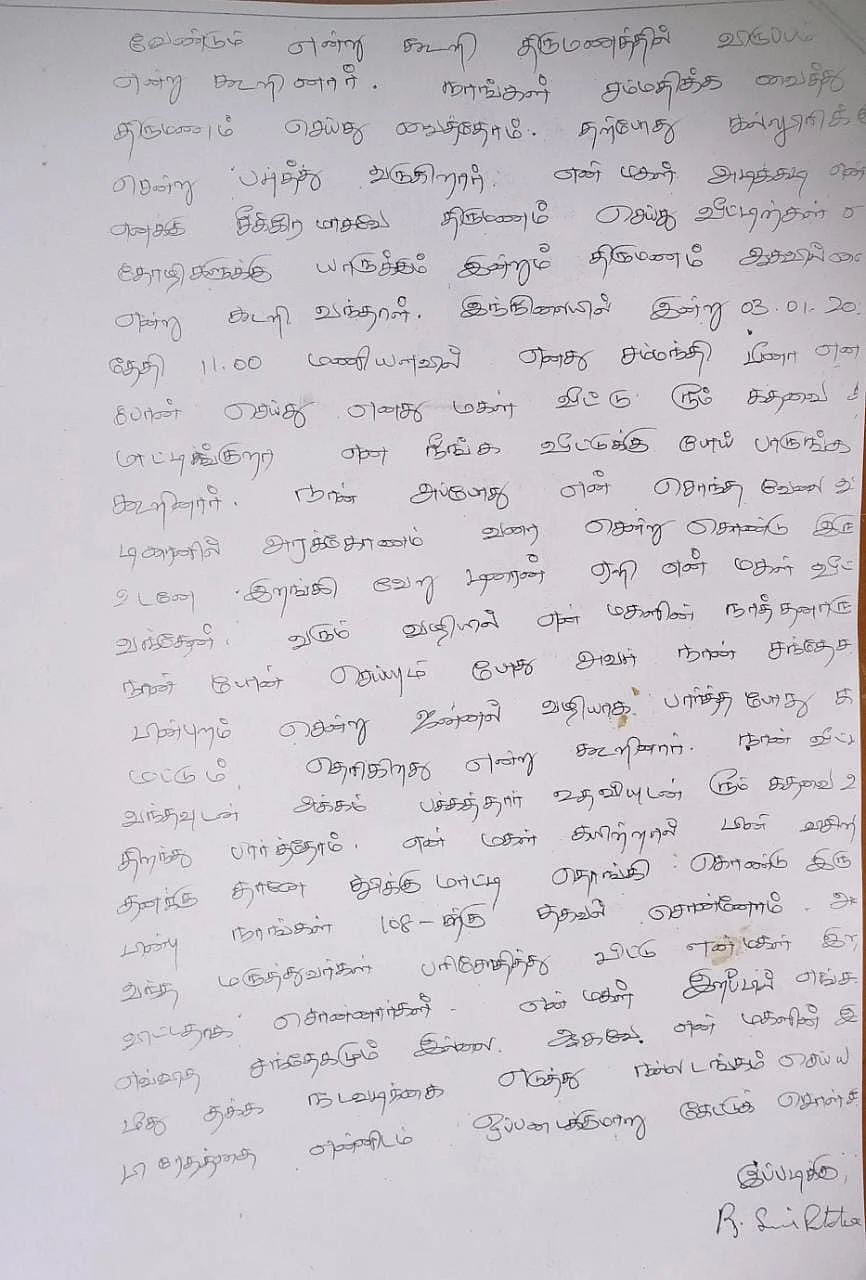 வேண்டும் என்று கூறி திருமணத்தில் விருப்பம்
என்று கூறினார். நாங்கள் சம்மதிக்க வைத்து
திருமணம் செய்து வைத்தோம். தற்போது கல்லூரிக்கு
சென்று படித்து வருகிறார். என் மகள் அடிக்கடி என்
எனக்கு சீக்கிரமாகவே திருணம் செய்து வீட்டிர்கள்
தோழிகளுக்கு யாருக்கும் இன்றும் திருமணம் ஆகவில்லை
என்று கூறி வந்தாள். இந்நிலையில் இன்று 03.01.20
தேதி 11.00 மணியளவில் எனது சம்மந்தி மீனா என
போன் செய்து எனது மகள் வீட்டு ரூம் கதவை
மாட்டிக்குறா என நீங்க வீட்டுக்கு போய் பாருங்க
கூறினார். நான் அப்போது என் சொந்த வேலை
டிரைனில் அரக்கோணம் வரை சென்று கொண்டு இரு
உடனே இறங்கி வேறு டிரைன் ஏறி என் மகள் வீட்
வந்தேன். வரும் வழியில் என் மகளின் நாத்தனாரு
நான் போன் செய்யும் போது அவள் நான் சந்தேக
பின்புறம் சென்று ஜன்னல் வழியாக பார்த்த போது க
மட்டும் தெரிகிறது என்று கூறினார். நான் வீட்
வந்தவுடன் அக்கம் பக்கத்தார் உதவியுடன் ரூம் கதவை உ
திறந்து பார்த்தோம். என் மகள் கயிற்றால் மின் விசிறி
தனக்கு தானே தூக்கு மாட்டி தொங்கி கொண்டு இரு
பின்பு நாங்கள் 108-க்கு தகவல் சொன்னோம். அ
வந்த மருத்துவர்கள் பரிசோதித்து விட்டு என் மகள் இற
விட்டதாக சொன்னார்கள். என் மகள் இறப்பில் எங்க
எவ்வித சந்தேகமும் இல்லை. ஆகவே என் மகளின் இ
மீது தக்க நடவடிக்கை எடுத்து நல்லடங்கம் செய்ய
பிரேதத்தை என்னிடம் ஒப்படைக்குமாறு கேட்டுக் கொள்க
இப்படிக்கு,